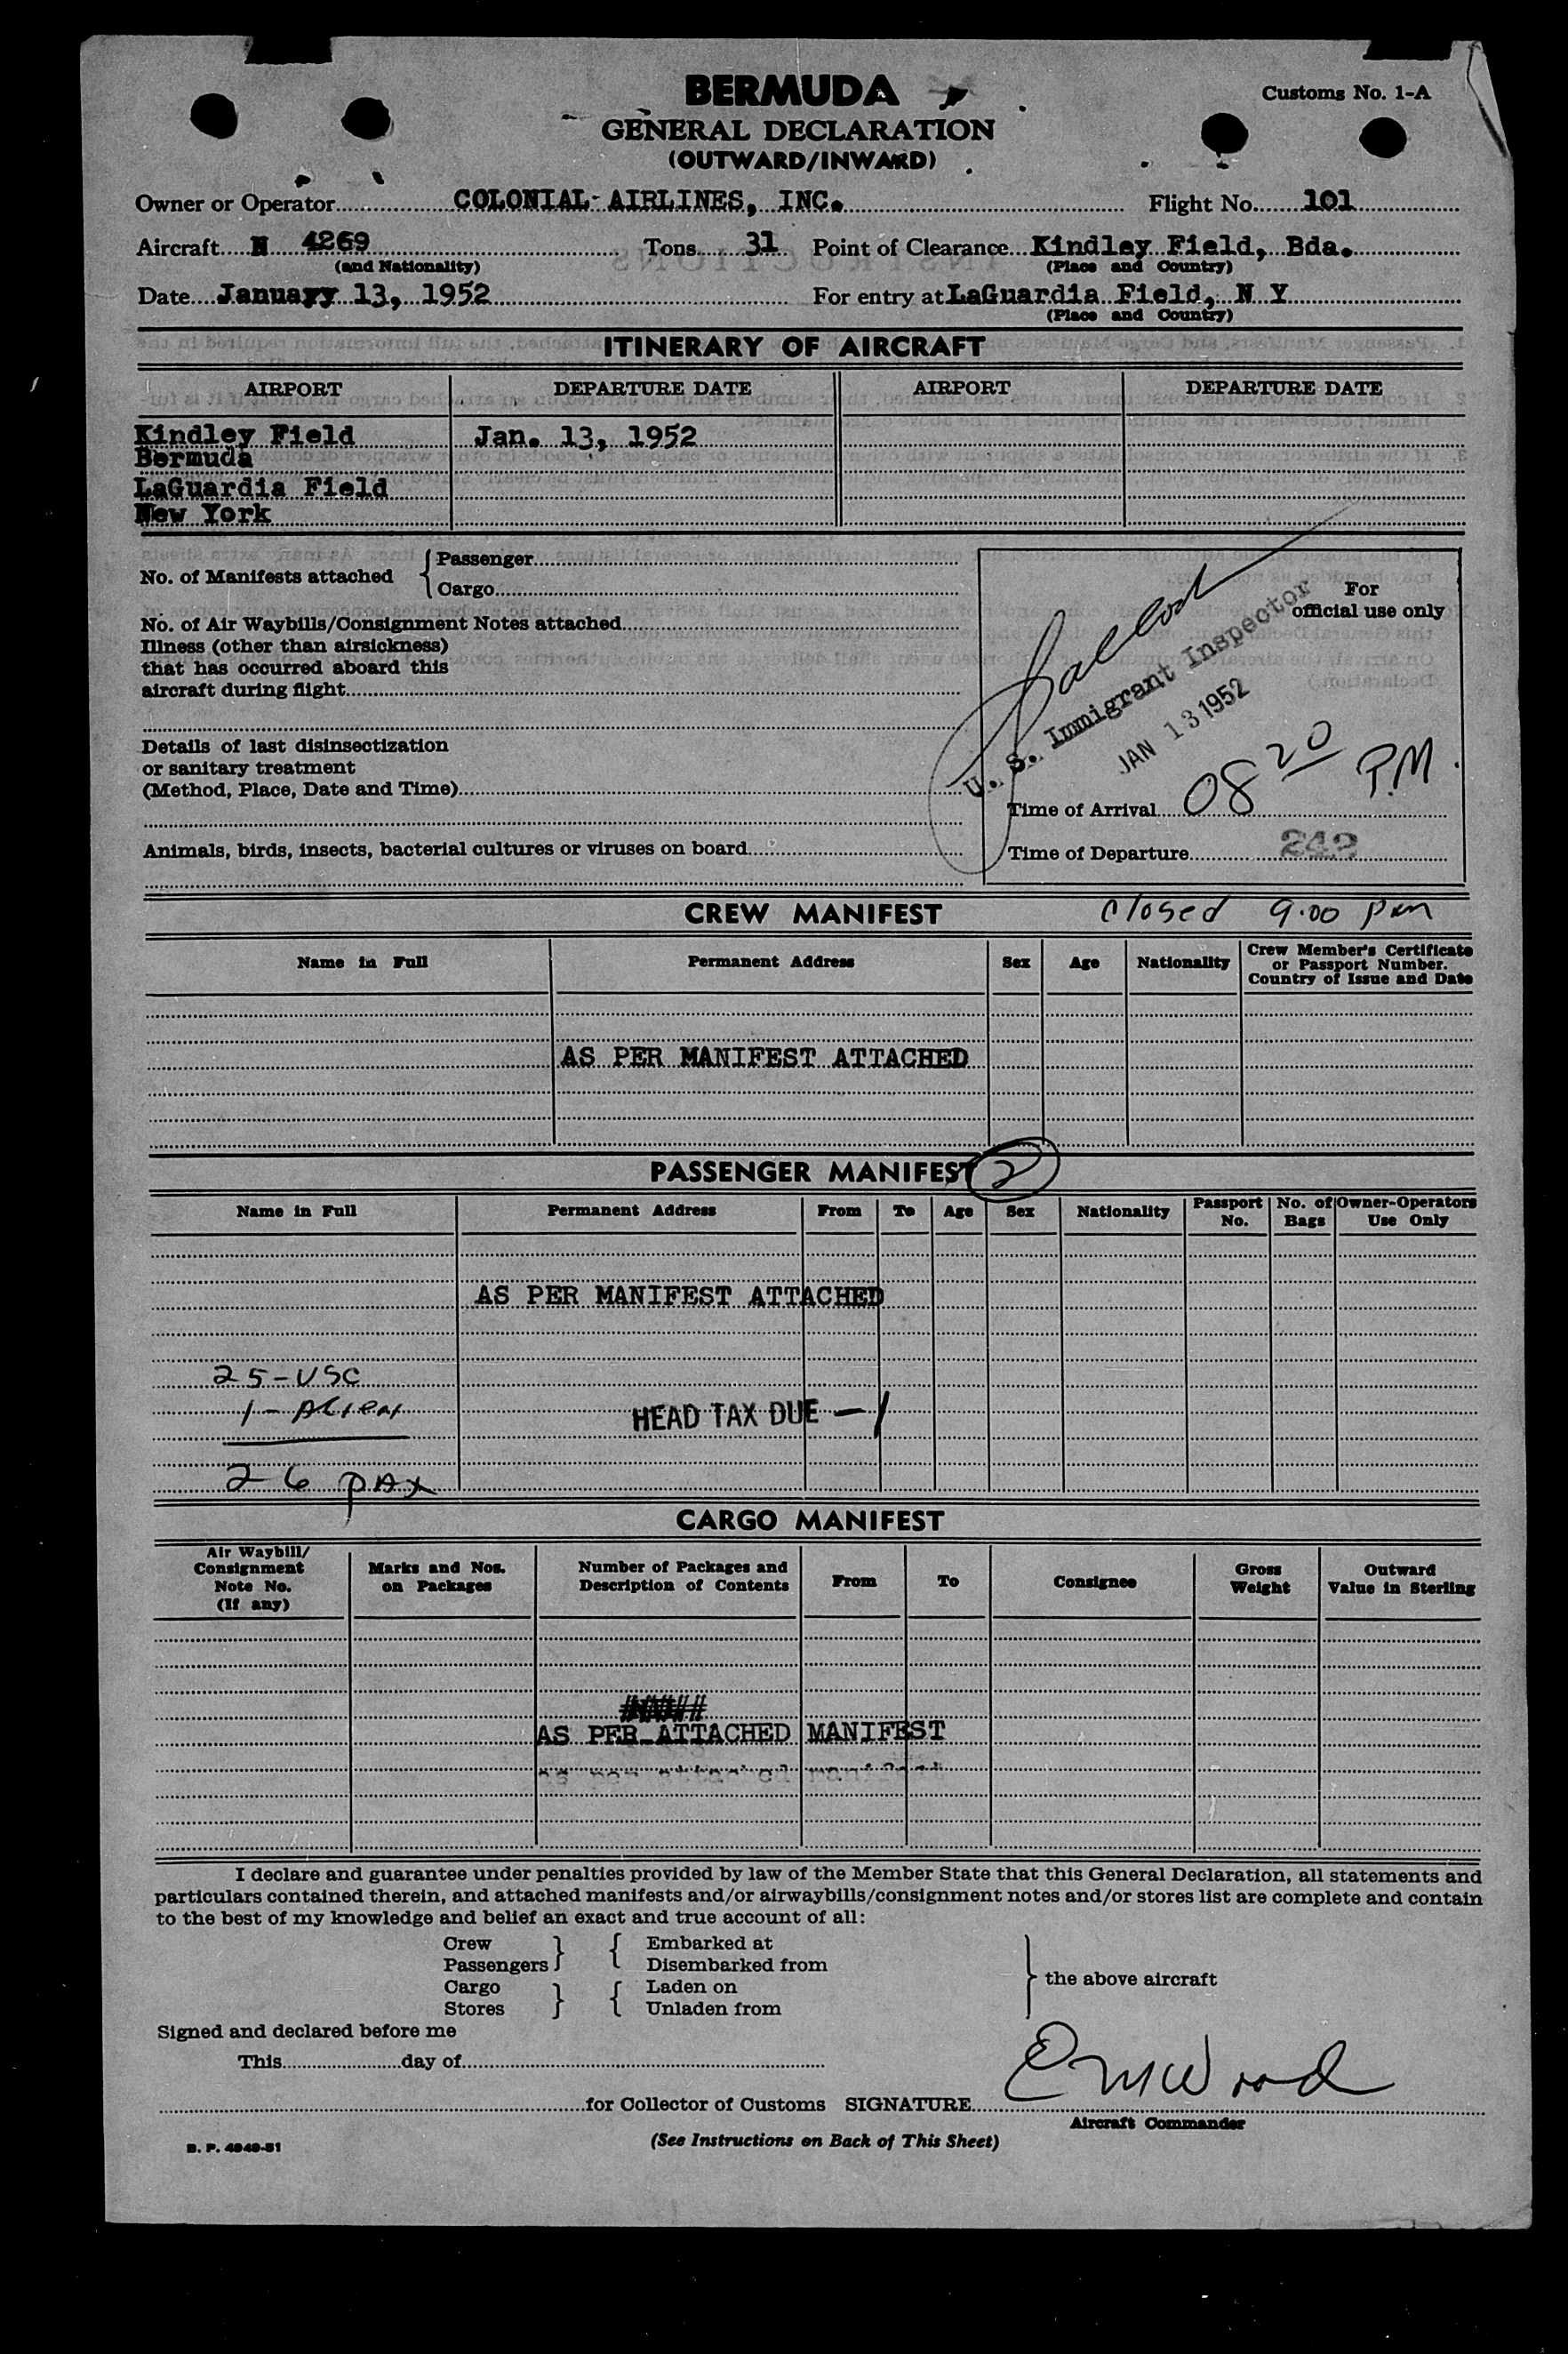 BERMUDA
Customs No. 1-A
GENERAL DECLARATION
(OUTWARD/INWARD)
Owner or Operator COLONIAL AIRLINES, INC. Flight No. 101
Aircraft N 4269 Tons 31 Point of Clearance Kindley Field, Bda.
(and Nationality) (Place and Country)
Date January 13, 1952 For entry at LaGuardia Field, N Y
(Place and Country)
ITINERARY OF AIRCRAFT
AIRPORT DEPARTURE DATE AIRPORT DEPARTURE DATE
Kindley Field Jan. 13, 1952
Bermuda
LaGuardia Field
New York
No. of Manifests attached { Passenger
Cargo
For
official use only
No. of Air Waybills/Consignment Notes attached
Illness (other than airsickness)
that has occurred aboard this
aircraft during flight
U. S. Immigrant Inspector
JAN 13 1952
Details of last disinsectization
or sanitary treatment
(Method, Place, Date and Time)
Time of Arrival 08 20 P.M.
Animals, birds, insects, bacterial cultures or viruses on board
Time of Departure 242
CREW MANIFEST closed 9.00 pm
Name in Full Permanent Address Sex Age Nationality Crew Member's Certificate
or Passport Number.
Country of Issue and Date
AS PER MANIFEST ATTACHED
PASSENGER MANIFEST 2
Name in Full Permanent Address From To Age Sex Nationality Passport No. No. of Bags Owner-Operators Use Only
AS PER MANIFEST ATTACHED
25 - USC
1 - Alien HEAD TAX DUE - 1
26 PAX
CARGO MANIFEST
Air Waybill/ Consignment Note No. (If any) Marks and Nos. on Packages Number of Packages and Description of Contents From To Consignee Gross Weight Outward Value in Sterling
AS PER ATTACHED MANIFEST
I declare and guarantee under penalties provided by law of the Member State that this General Declaration, all statements and
particulars contained therein, and attached manifests and/or airwaybills/consignment notes and/or stores list are complete and contain
to the best of my knowledge and belief an exact and true account of all:
Crew Embarked at
Passengers } { Disembarked from
Cargo Laden on } the above aircraft
Stores } { Unladen from
Signed and declared before me
This day of
for Collector of Customs SIGNATURE EmWood
Aircraft Commander
B. P. 4949-51
(See Instructions on Back of This Sheet)